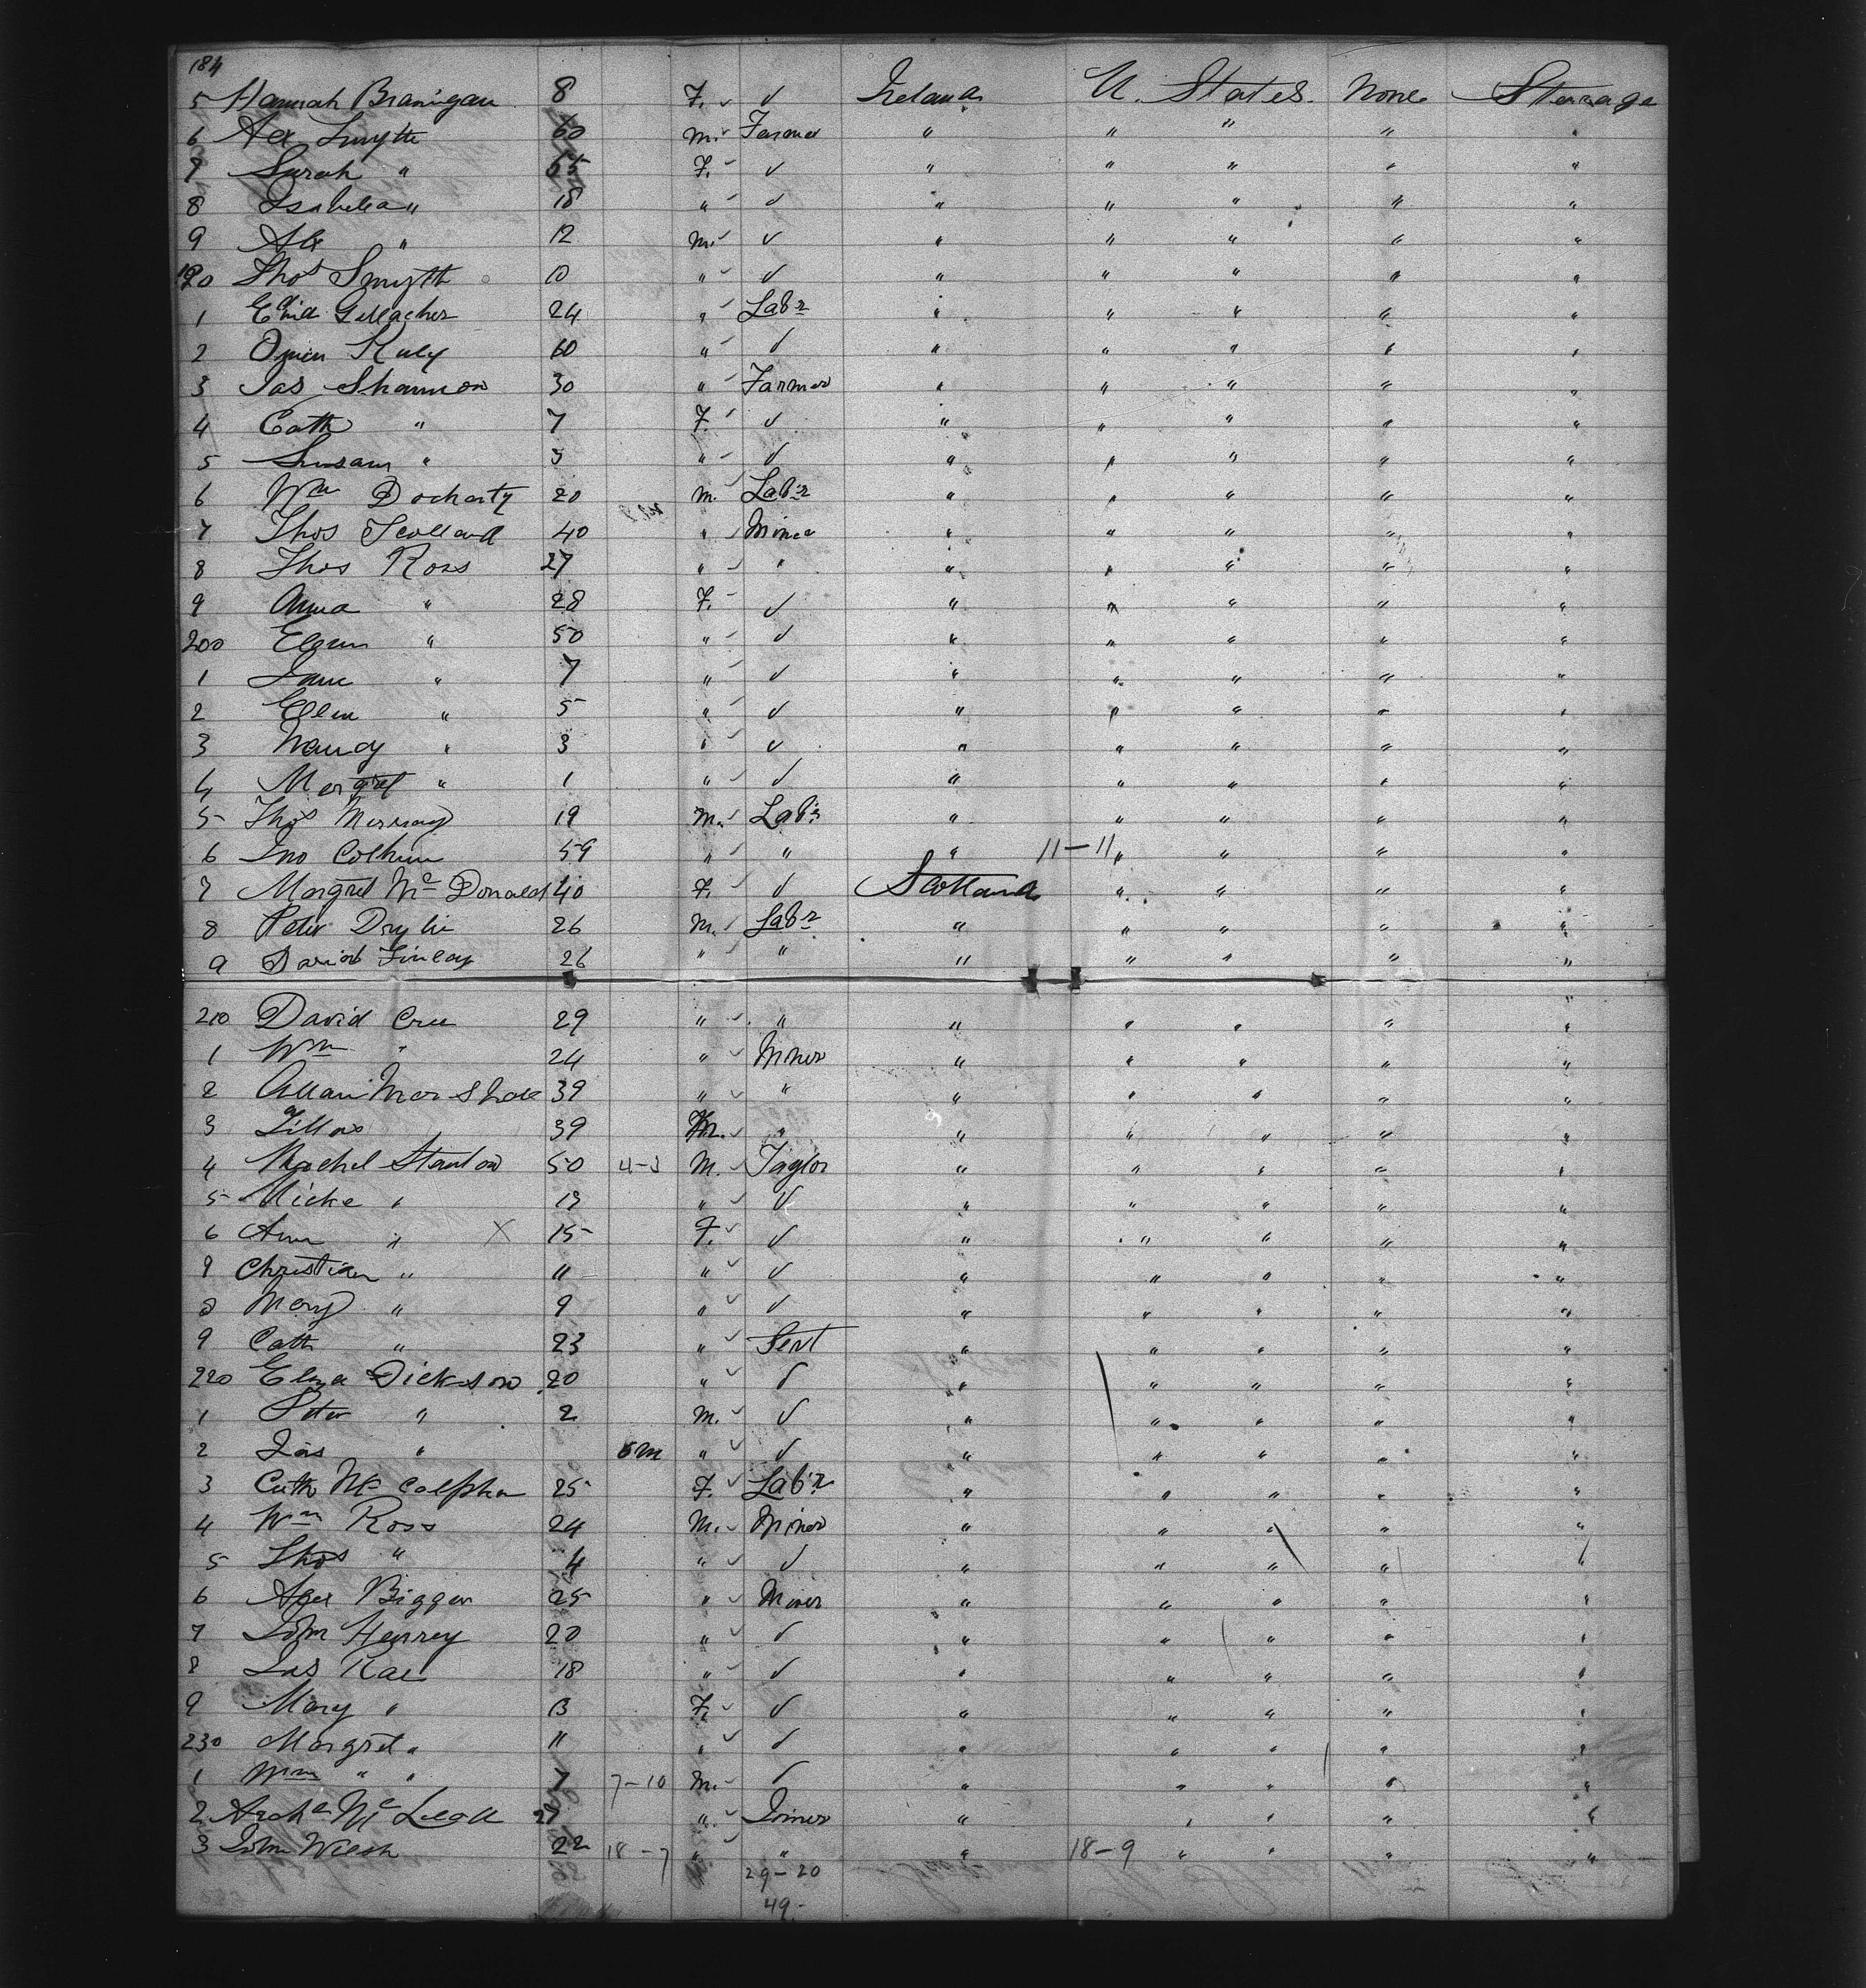 184
5 Hannah Branigan 8 F. ✓ Ireland U. States. None Steerage
6 Alex Smyth 60 M. Farmer " " " " "
7 Sarah " 55 F. ✓ " " " " "
8 Isabella " 18 " ✓ " " " " "
9 Alx " 12 M. ✓ " " " " "
190 Thos Smyth 10 " ✓ " " " " "
1 Gellacher 24 " Labr " " " " "
2 Owen 60 " ✓ " " " " "
3 Jas Shannon 30 " Farmer " " " " "
4 Cath " 7 F. ✓ " " " " "
5 Susan " 3 " ✓ " " " " "
6 Wm Docharty 20 M. Labr " " " " "
7 Thos Scolland 40 " Miner " " " " "
8 Thos Ross 27 " " " " " " "
9 Anna " 28 F. ✓ " " " " "
200 " 50 " ✓ " " " " "
1 Jane " 7 " ✓ " " " " "
2 Ellen " 5 " ✓ " " " " "
3 Nancy " 3 " ✓ " " " " "
4 Margret " 1 " ✓ " " " " "
5 Thos Murray 19 M. Labr " " " " "
6 Jno Colhum 59 " " " 11-11 " " " "
7 Margret Mc Donald 40 F. ✓ Scotland " " " "
8 Peter Drylie 26 M. Labr " " " " "
9 David Finlay 26 " " " " " " "
210 David Cree 29 " " " " " " "
1 Wm " 24 " Miner " " " " "
2 Allan Marshall 39 " " " " " " "
3 39 M. " " " " " "
4 Michel Stanton 50 4-3 M. Taylor " " " " "
5 Micke " 19 " ✓ " " " " "
6 Ann " X 15 F. ✓ " " " " "
7 Christian " 11 " ✓ " " " " "
8 Mary " 9 " ✓ " " " " "
9 Cath " 23 " Sert " " " " "
220 Eliza Dickson 20 " ✓ " " " " "
1 Peter " 2 M. ✓ " " " " "
2 Jas " 6m " ✓ " " " " "
3 Cath Mc Calpha 25 F. Labr " " " " "
4 Wm Ross 24 M. Miner " " " " "
5 Thos " 4 " ✓ " " " " "
6 Alex Bigger 25 " Miner " " " " "
7 John Henrey 20 " ✓ " " " " "
8 Jas Rae 18 " ✓ " " " " "
9 Mary " 13 F. ✓ " " " " "
230 Margret " 11 " ✓ " " " " "
1 Wm " " 7 7-10 M. ✓ " " " " "
2 Archd Mc 27 " Joiner " " " " "
3 John Welsh 22 18-7 " " " 18-9 " " " "
29-20
49-